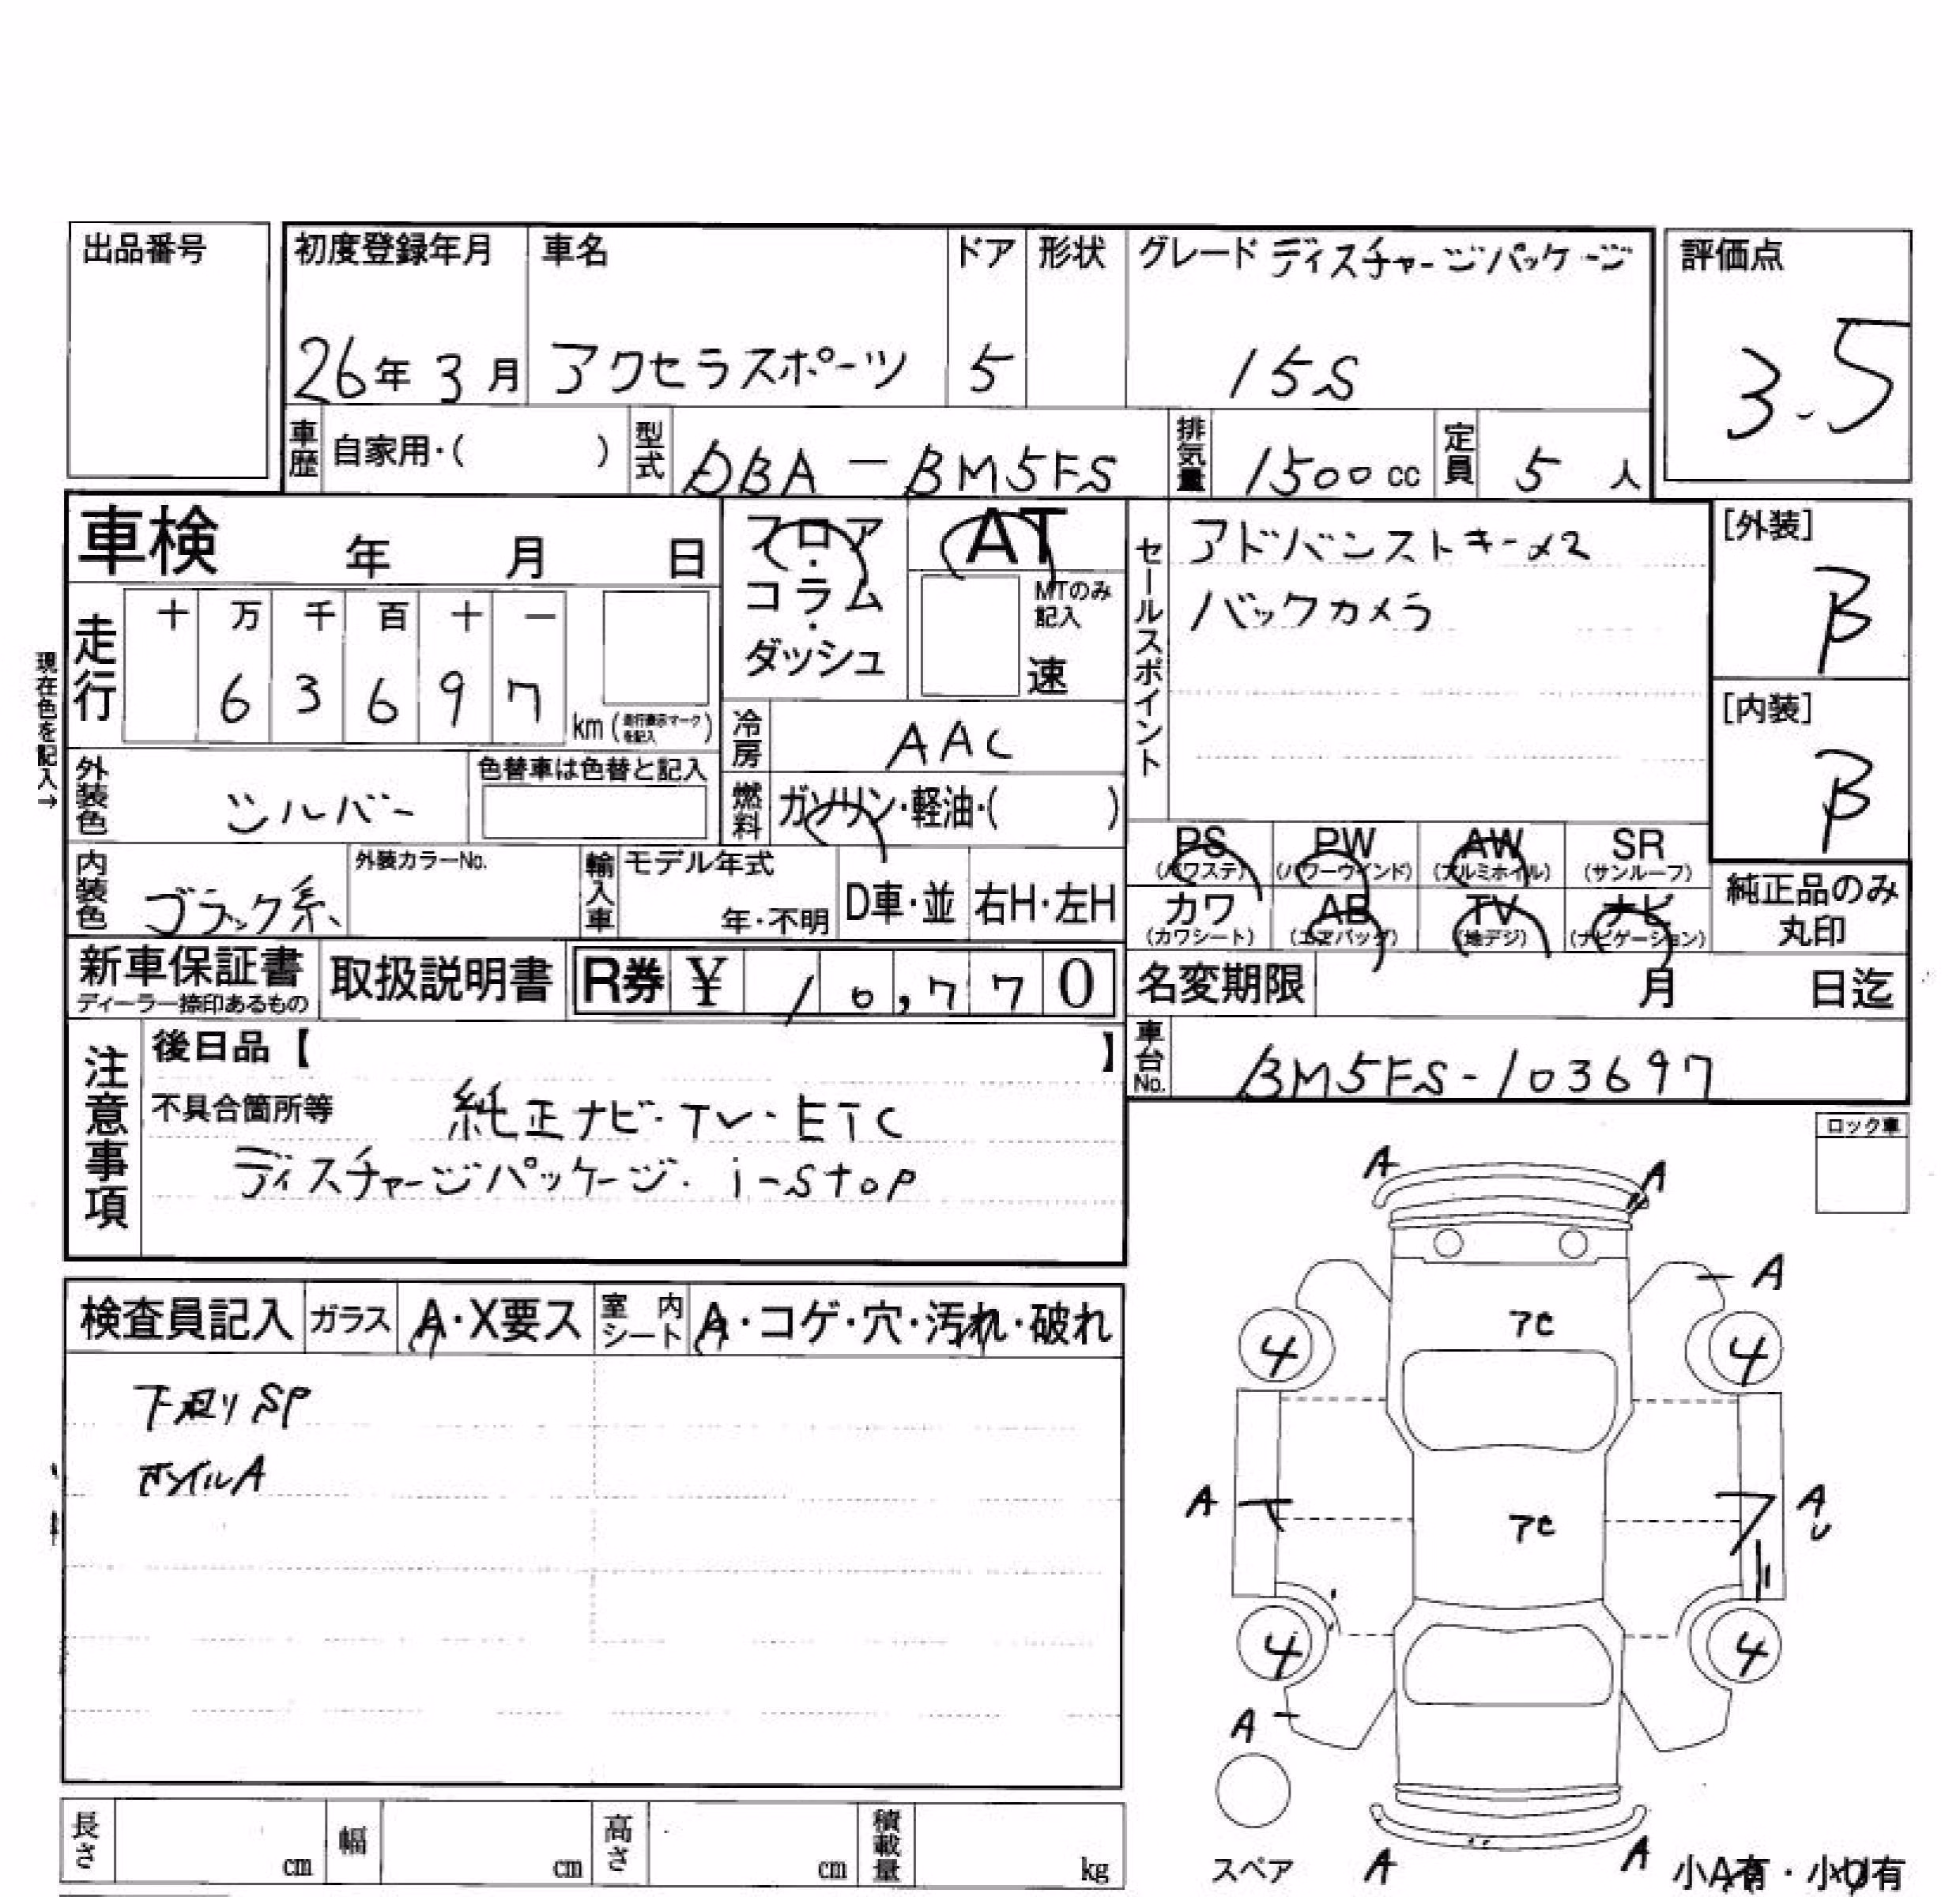 出品番号
初度登録年月 車名 ドア 形状 グレード ディスチャージパッケージ 評価点
26年 3月 アクセラスポーツ 5 15S 3.5
車歴 自家用・( ) 型式 DBA-BM5FS 排気量 1500cc 定員 5人
車検 年 月 日
フロア・コラム・ダッシュ
AT
MTのみ記入
速
セールスポイント
アドバンストキー×2
バックカメラ
[外装]
B
[内装]
B
現在色を記入→
走行 十 万 千 百 十 一
6 3 6 9 7
km (走行表示マークを記入)
冷房 AAC
外装色 シルバー 色替車は色替と記入
燃料 ガソリン・軽油・( )
内装色 ブラック系 外装カラーNo. 輸入車 モデル年式 年・不明 D車・並 右H・左H
PS (パワステ) PW (パワーウインド) AW (アルミホイル) SR (サンルーフ)
カワ (カワシート) AB (エアバッグ) TV (地デジ) ナビ (ナビゲーション)
純正品のみ丸印
新車保証書 ディーラー捺印あるもの 取扱説明書 R券 ¥ 10,770
名変期限 月 日迄
車台No. BM5FS-103697
注意事項
後日品【 】
不具合箇所等 純正ナビ・TV・ETC
ディスチャージパッケージ・i-stop
ロック車
検査員記入 ガラス A・X要ス 室内シート A・コゲ・穴・汚れ・破れ
下廻りSP
ホイルA
A A
A
アC
4 4
A アC A U
4 4
A
スペア A A 小A有・小U有
長さ cm 幅 cm 高さ cm 積載量 kg